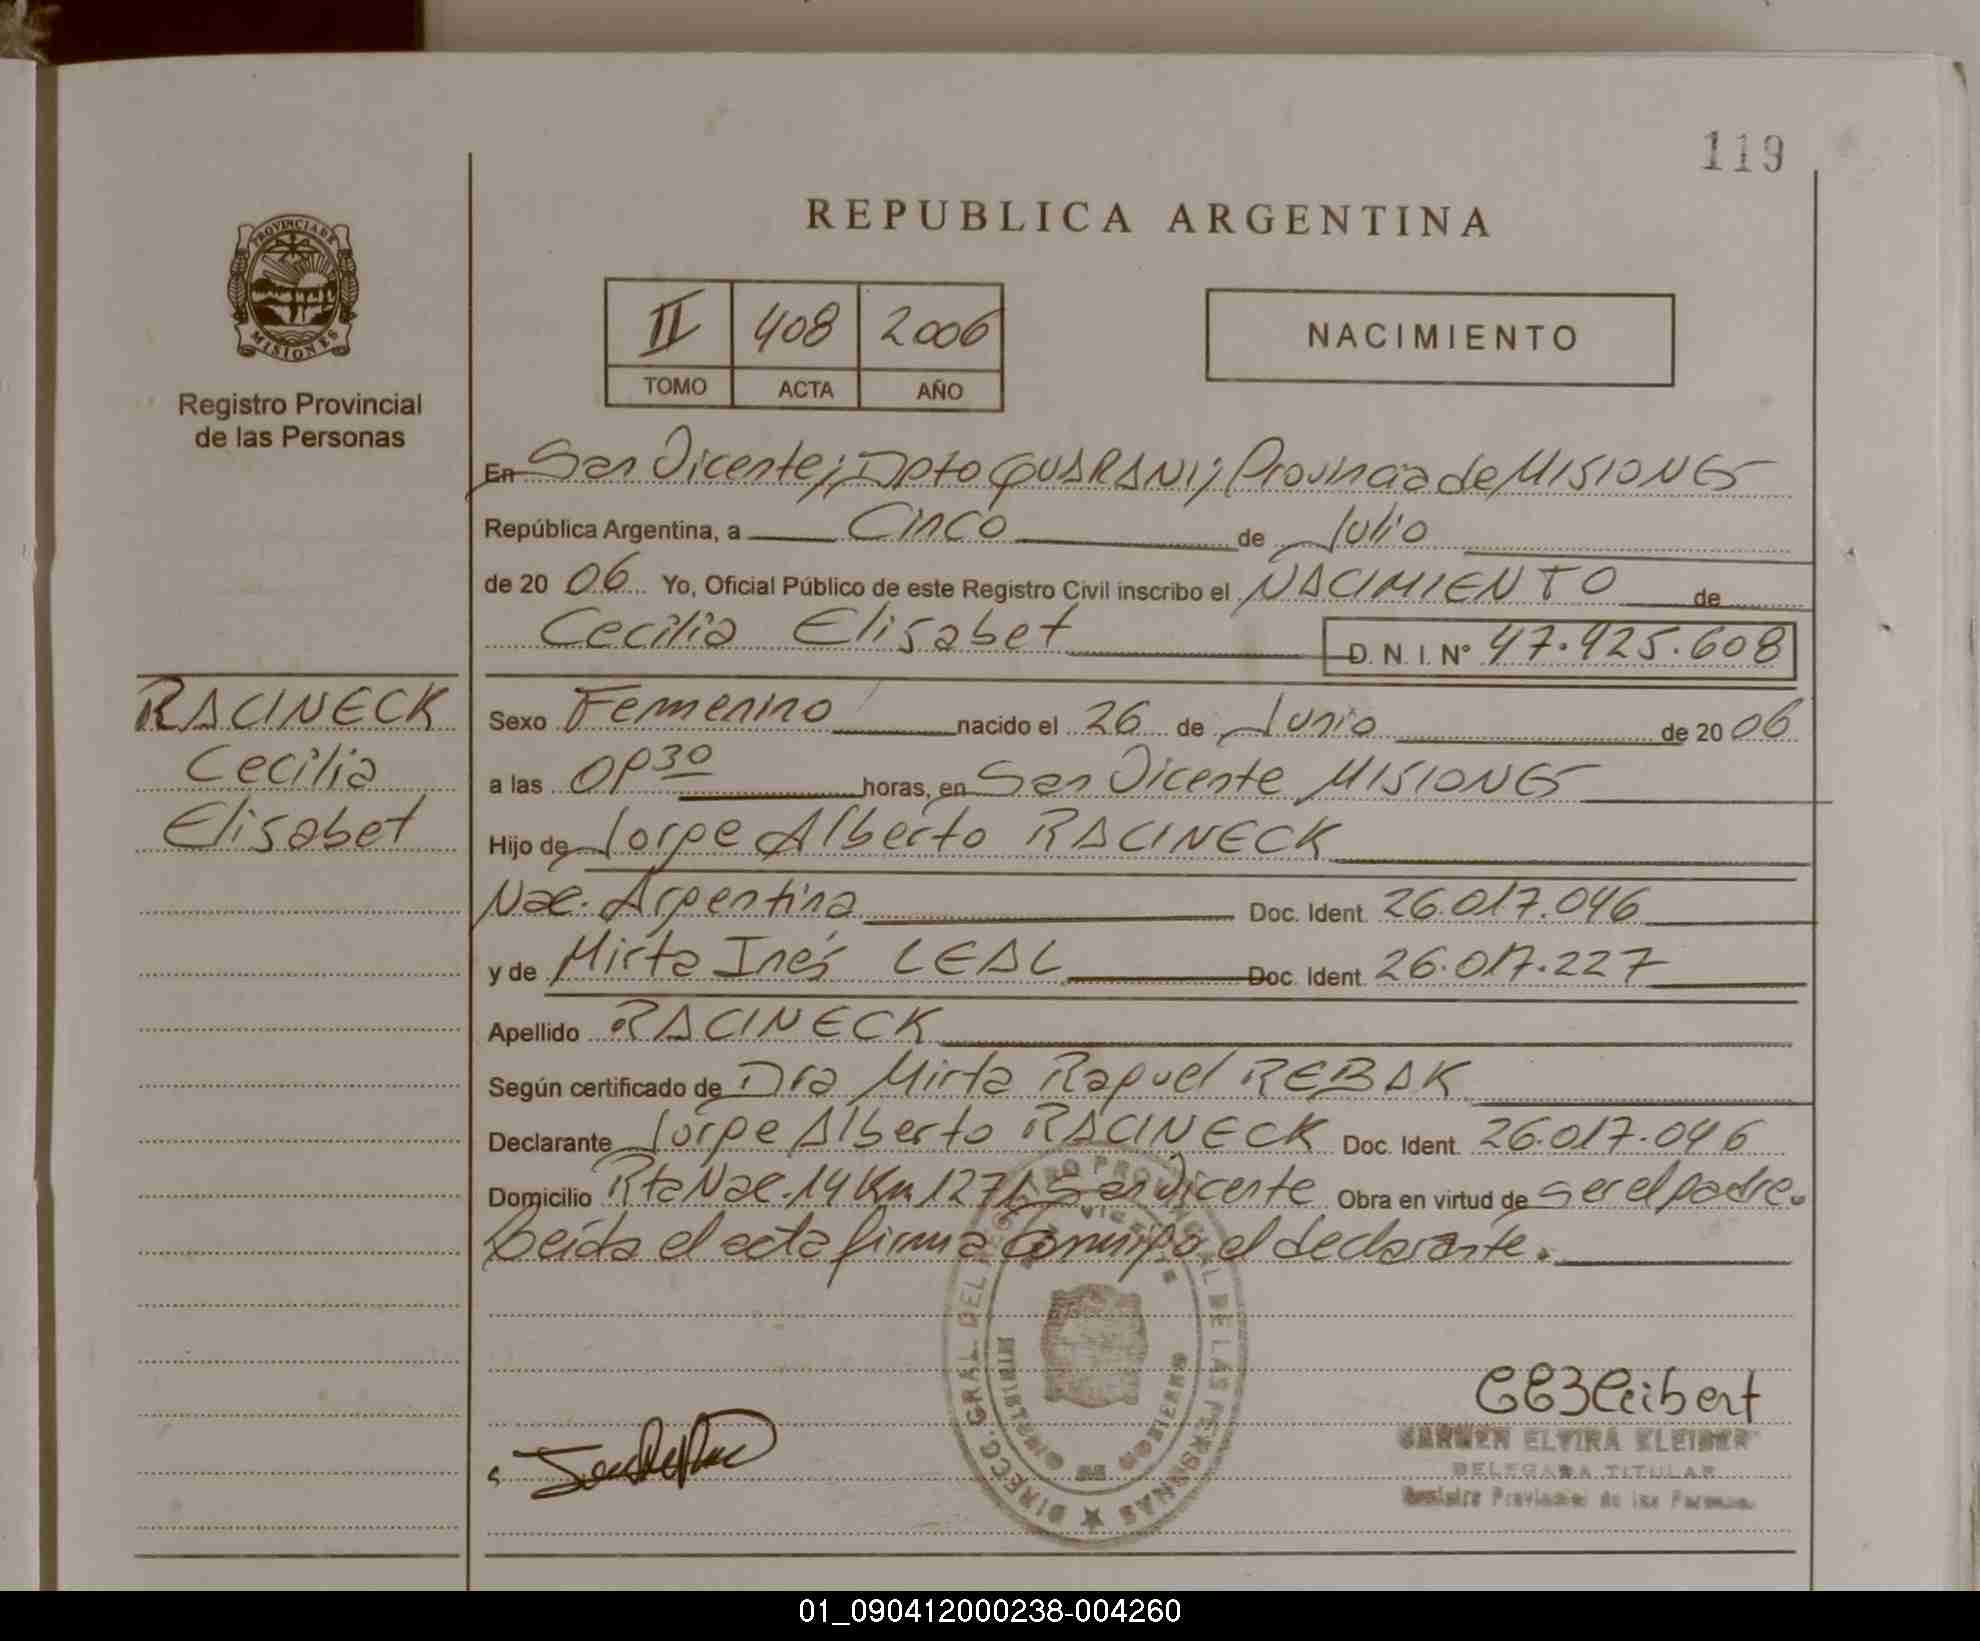 119
PROVINCIA DE
MISIONES
Registro Provincial
de las Personas
REPUBLICA ARGENTINA
II 408 2006
TOMO ACTA AÑO
NACIMIENTO
En San Vicente; Dpto GUARANI; Provincia de MISIONES
República Argentina, a Cinco de Julio
de 20 06 Yo, Oficial Público de este Registro Civil inscribo el NACIMIENTO de
Cecilia Elisabet D. N. I. N° 47.425.608
RACINECK
Cecilia
Elisabet
Sexo Femenino nacido el 26 de Junio de 20 06
a las 09 30 horas, en San Vicente MISIONES
Hijo de Jorge Alberto RACINECK
Nac. Argentina Doc. Ident. 26.017.046
y de Mirta Inés LEAL Doc. Ident. 26.017.227
Apellido RACINECK
Según certificado de Dra Mirta Raquel REBAK
Declarante Jorge Alberto RACINECK Doc. Ident. 26.017.046
Domicilio Rta Nac. 14 Km 1271 San Vicente Obra en virtud de ser el padre.
Leída el acta firma Conmigo el declarante.
DIRECC. GRAL. DEL REGISTRO PROVINCIAL DE LAS PERSONAS
SAN VICENTE
MINISTERIO DE GOBIERNO
CARMEN ELVIRA KLEIBER
DELEGADA TITULAR
Registro Provincial de las Personas
01_090412000238-004260